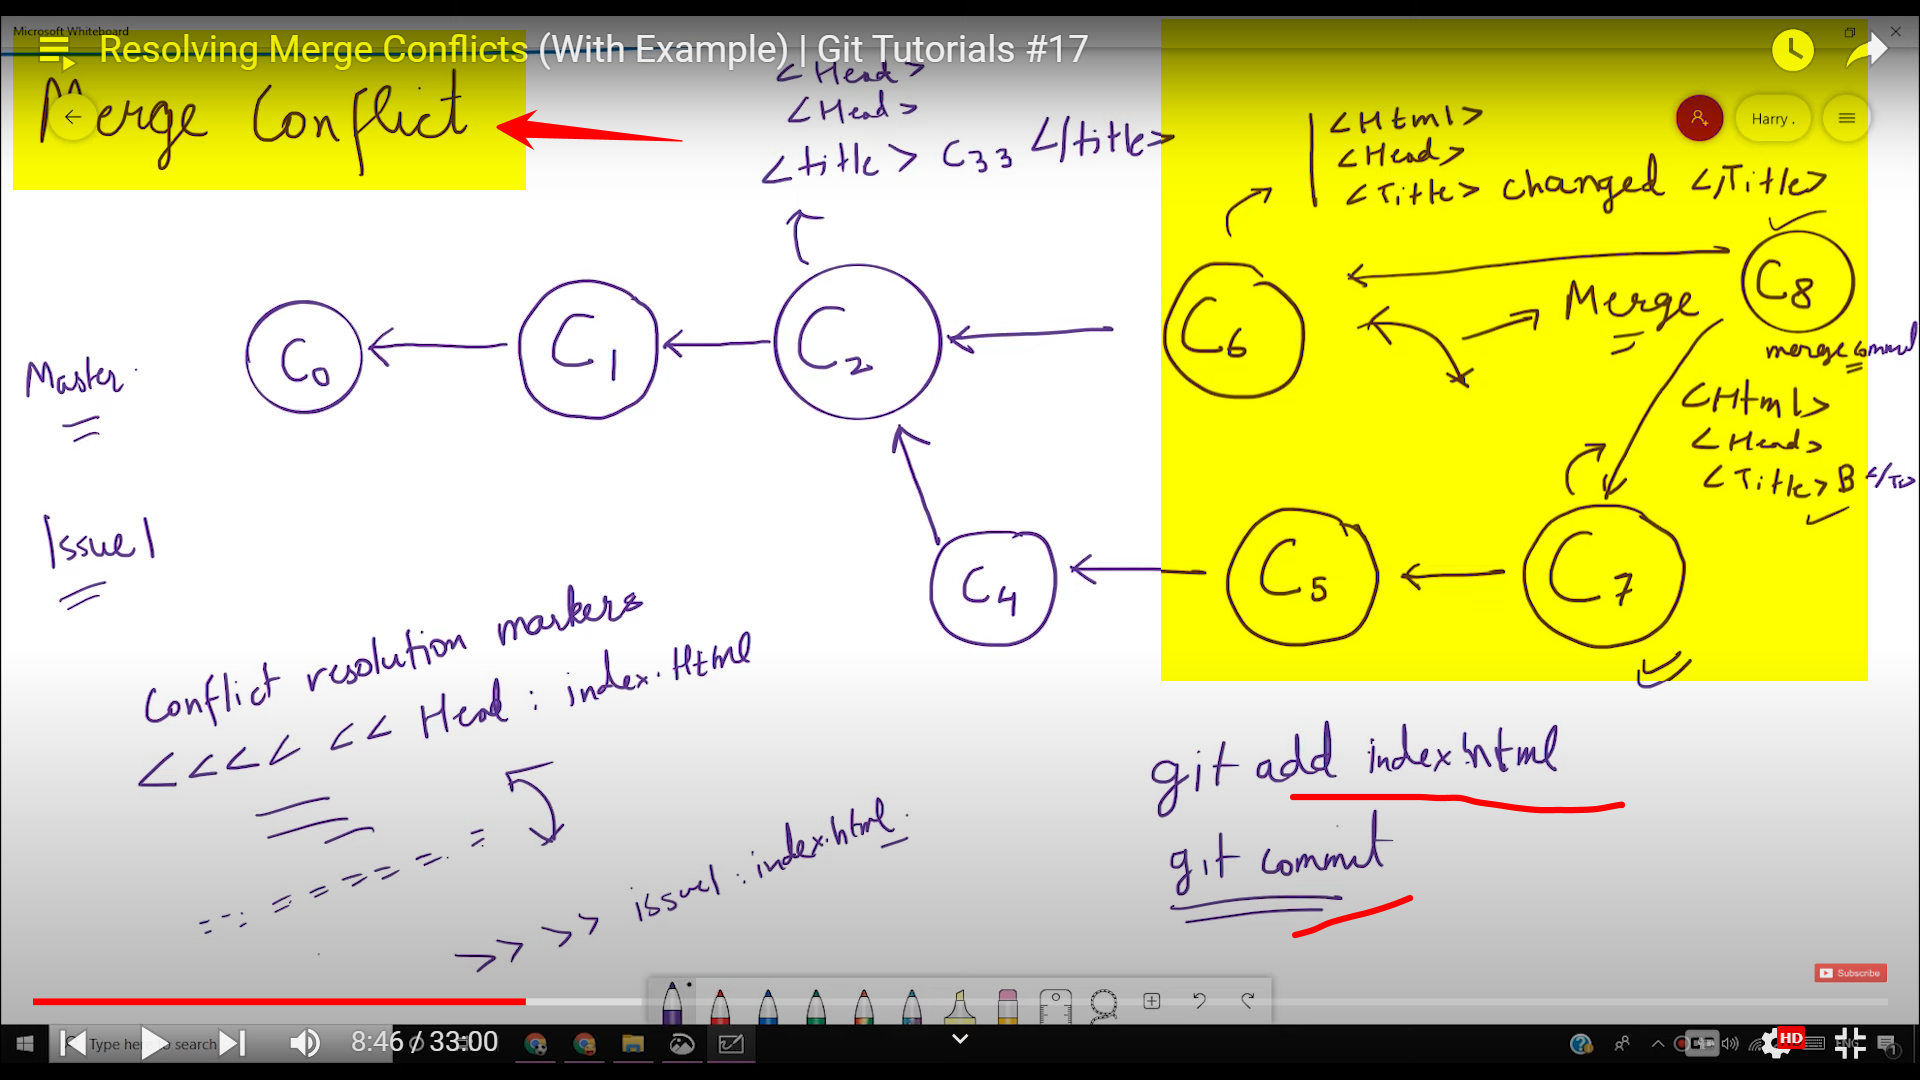 Microsoft Whiteboard
Resolving Merge Conflicts (With Example) | Git Tutorials #17
Merge Conflict
<Head>
<Head>
<title> C33 </title>
<Html>
<Head>
<Title> changed </Title>
Harry .
Master
C0
C1
C2
C6
Merge
C8
merge commit
<Html>
<Head>
<Title> B
Issue1
C4
C5
C7
Conflict resolution markers
<<<< << Head : index.Html
= = = = = =
>> >> issue1 : index.html
git add index.html
git commit
Subscribe
8:46 / 33:00
Type here to search
HD
ENG
1